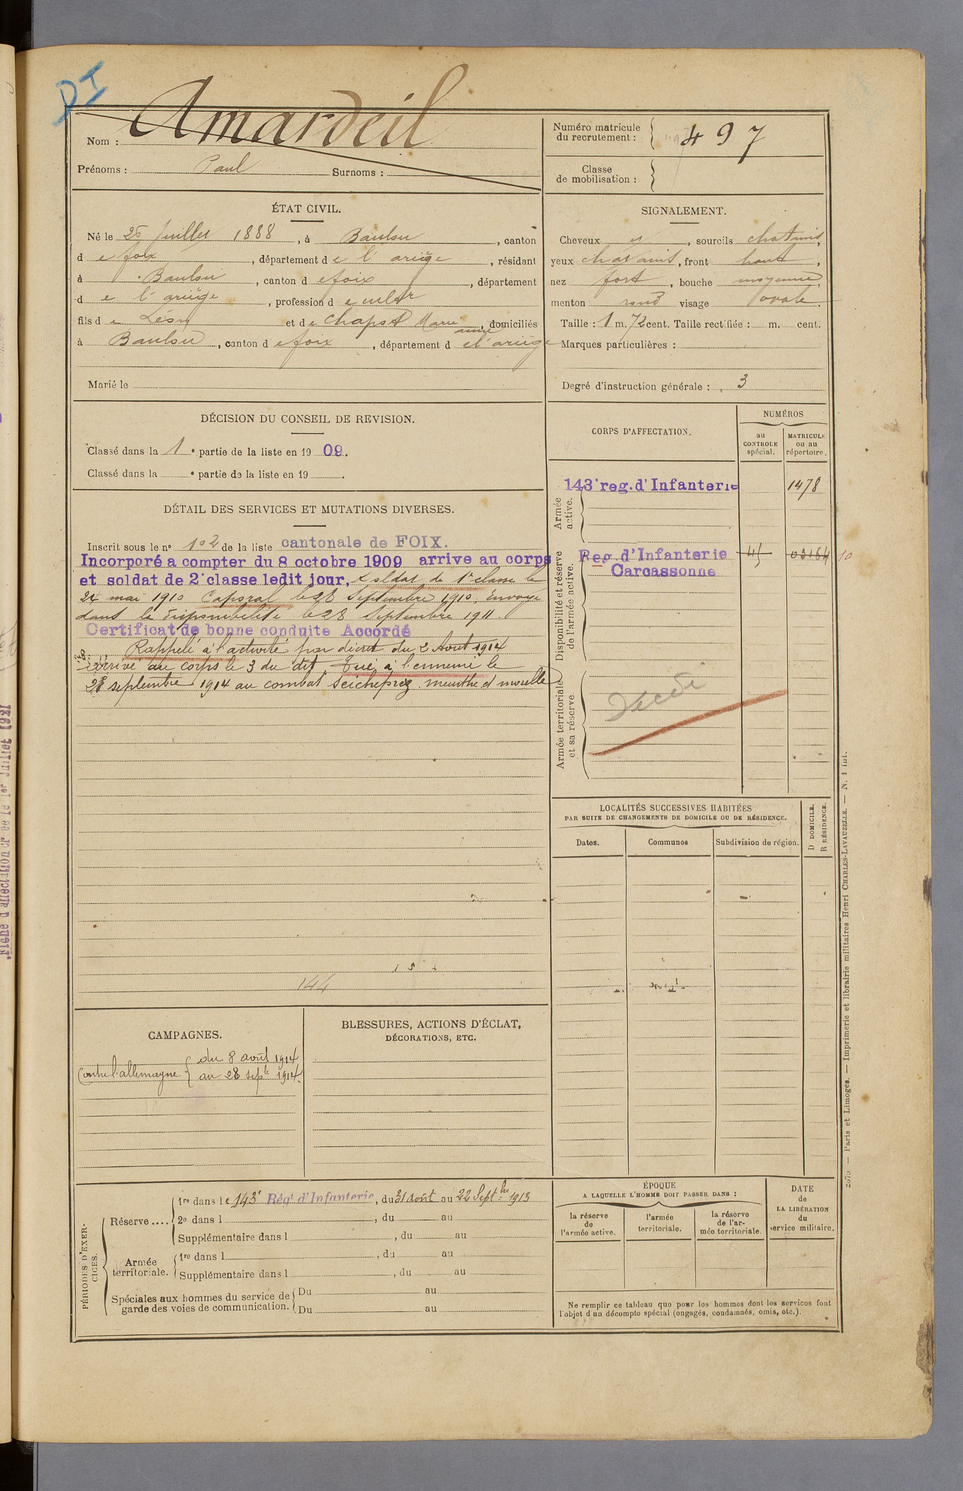 DI
Nom : Amardeil
Prénoms : Paul Surnoms :
Numéro matricule du recrutement : 497
Classe de mobilisation :
ÉTAT CIVIL.
Né le 25 juillet 1888, à Baulou, canton
de foix, département de l'ariège, résidant
à Baulou, canton de foix, département
de l'ariège, profession de cultr
fils de Léon et de Chapst Marie anne, domiciliés
à Baulou, canton de foix, département de l'ariège
Marié le
SIGNALEMENT.
Cheveux et, sourcils chatains,
yeux chatains, front haut,
nez fort, bouche moyenne
menton rond visage ovale.
Taille : 1 m. 72 cent. Taille rectifiée : m. cent.
Marques particulières :
Degré d'instruction générale : 3
DÉCISION DU CONSEIL DE REVISION.
Classé dans la 1e partie de la liste en 1909.
Classé dans la e partie de la liste en 19 .
DÉTAIL DES SERVICES ET MUTATIONS DIVERSES.
Inscrit sous le no 102 de la liste cantonale de FOIX.
Incorporé a compter du 8 octobre 1909 arrive au corps
et soldat de 2e classe ledit jour, Soldat de 1e classe le
24 mai 1910 Caporal le 28 Septembre 1910, Envoyé
dans la disponibilité le 28 septembre 1911.
Certificat de bonne conduite Accordé
Rappelé à l'activité par décret du 2 Août 1914
arrivé au corps le 3 du dit Tué à l'ennemi le
28 septembre 1914 au combat Seicheprez meurthe et moselle
144
CORPS D'AFFECTATION.
NUMÉROS
au CONTROLE spécial.
MATRICULE ou au répertoire.
Armée active.
143e reg. d'Infanterie 1478
Disponibilité et réserve de l'armée active.
Reg. d'Infanterie 45 03164 10
Carcassonne
Armée territoriale et sa réserve
Décédé
LOCALITÉS SUCCESSIVES HABITÉES
PAR SUITE DE CHANGEMENTS DE DOMICILE OU DE RÉSIDENCE.
Dates. Communes Subdivision de région.
D DOMICILE.
R RÉSIDENCE.
CAMPAGNES.
Contre l'allemagne { du 8 août 1914
au 28 septe 1914.
BLESSURES, ACTIONS D'ÉCLAT,
DÉCORATIONS, ETC.
PÉRIODES D'EXERCICES.
Réserve .... 1re dans le 143e Régt d'Infanterie, du 31 août au 22 Septbre 1913
2e dans l , du au
Supplémentaire dans l , du au
Armée territoriale. 1re dans l , du au
Supplémentaire dans l , du au
Spéciales aux hommes du service de garde des voies de communication. Du au
Du au
ÉPOQUE
A LAQUELLE L'HOMME DOIT PASSER DANS :
la réserve de l'armée active.
l'armée territoriale.
la réserve de l'armée territoriale.
DATE de LA LIBÉRATION du service militaire.
Ne remplir ce tableau que pour les hommes dont les services font
l'objet d'un décompte spécial (engagés, condamnés, omis, etc.).
Paris et Limoges. — Imprimerie et librairie militaires Henri CHARLES-LAVAUZELLE. — N. 1 int.